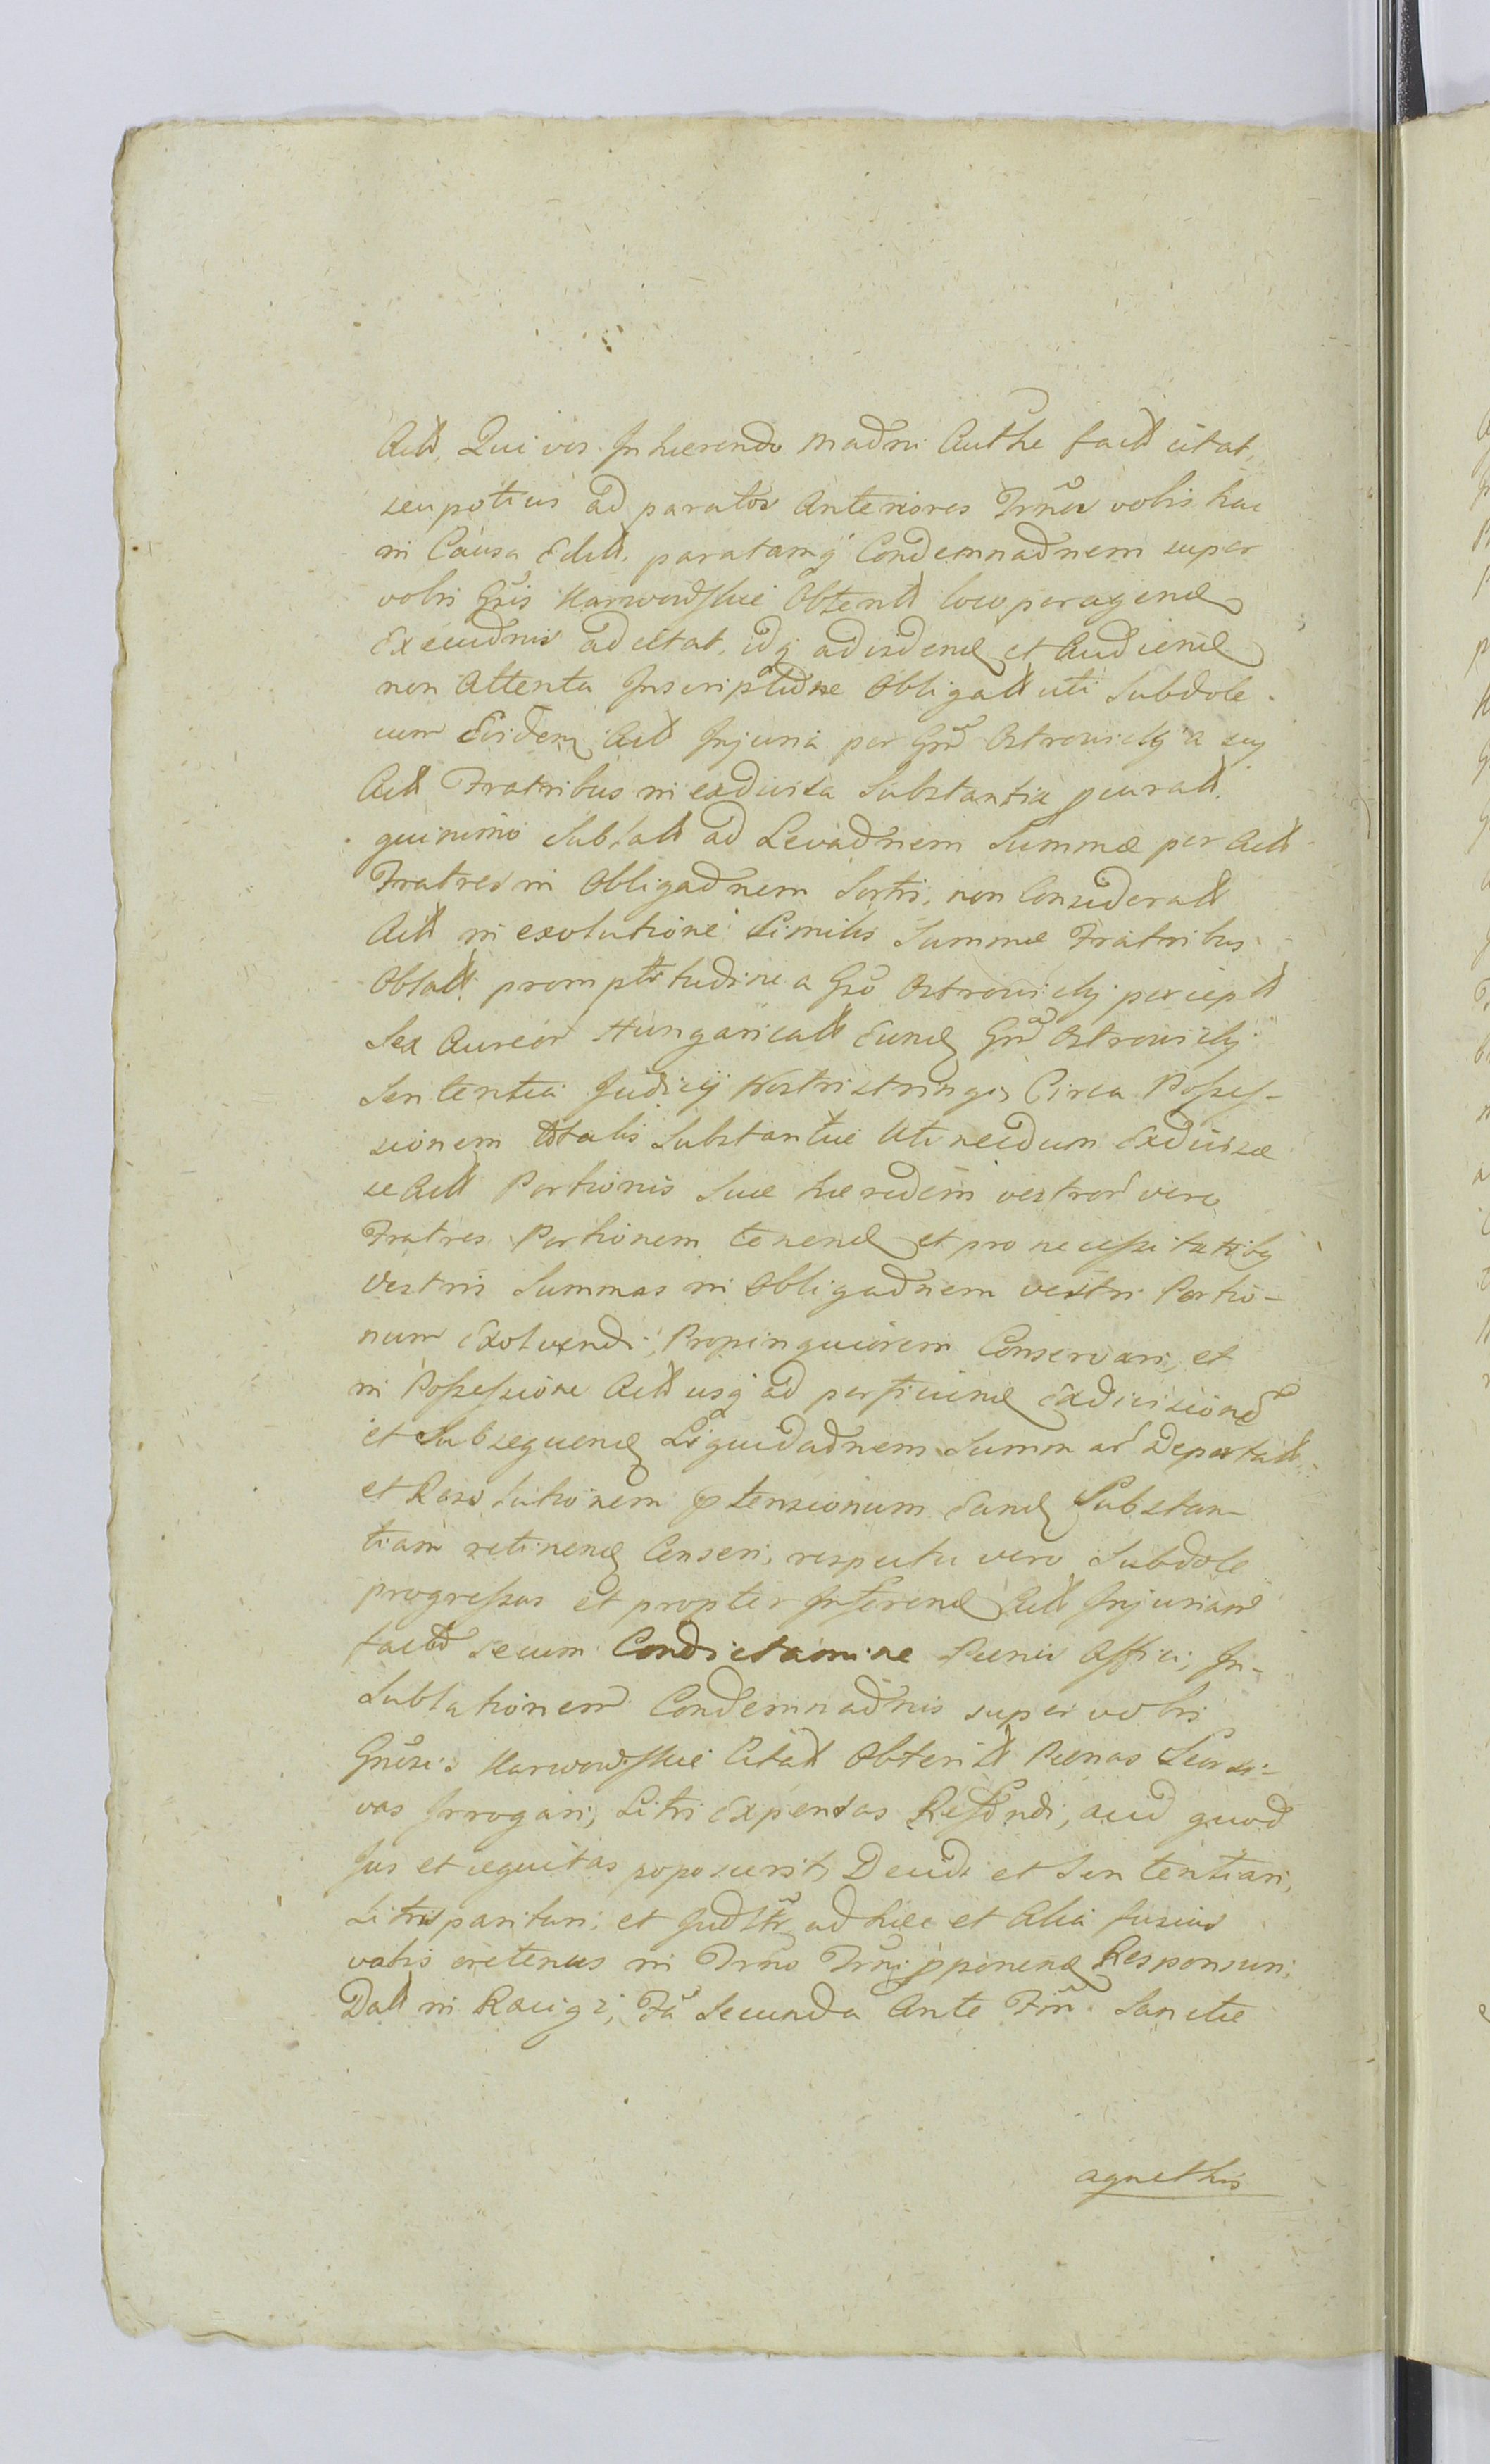 Actt, Qui vos Inhærendo madni Authe factt citat,
seu potius ad paratos Anteriores Trnos vobis hac
in Causa Editt, paratamq Condemnadnem super
vobis Gsis Karwowskie Obtentt loco peragend
Execudnis adcitat, idq ad vidend et Audiend
non Attenta Inscriptidne Obligatt uti Subdole
cum Eisdem Actt Injuria per Gnd Ostrowicky a suj
Actt Fratribus in exdivisa Substantia pcuratt,
quinimo Sublatt ad Levadnem Summæ per Actt
Fratres in Obligadnem Sortis, non Consideratt
Actt in exolutione Similis Summæ Fratribus
Oblatt promptitudine a Gso Ostrowicky perceptt
Sex Aureor Hungaricatt Eund Gnd Ostrowicky
Sententia Judicij Nostri stringi, Circa Posses-
sionem totalis Substantiæ Uti necdum Exdivisæ
se Actt Portionis Suæ hæredem vestror vero
Fratres Portionem tenend et pro necessitatibq
Vestris Summas in Obligadnem vestri Portio-
num Exolvendi, Propinquiorem Conservari, et
in Possessione Actt usq ad perficiend Exdivisiond
et Subsequend Liquidadnem Summar Deportatt
et Resolutionem ptensionum Eand Substan-
tiam retinend Censeri, respectu vero Subdole
progressus et propter Inferend Actt Injuriam
factd secum Condictamine Pœnis Affici, In-
Sublationem Condemnadnis super vobis
Gnosis Karwowskie Citatt Obtentt Pœnas Lucrsi-
vas Irrogari, Litis Expensas Refundi, aud quod
Jus et æquitas poposcerit, Decidi et Sententiari,
Litis parituri, et Judltr ad hæc et Alia fusius
vobis oretenus in Trno Trni pponend Responsuri,
Datt in Raigr, Fa Secunda Ante Ftm Sanctæ
agnethis